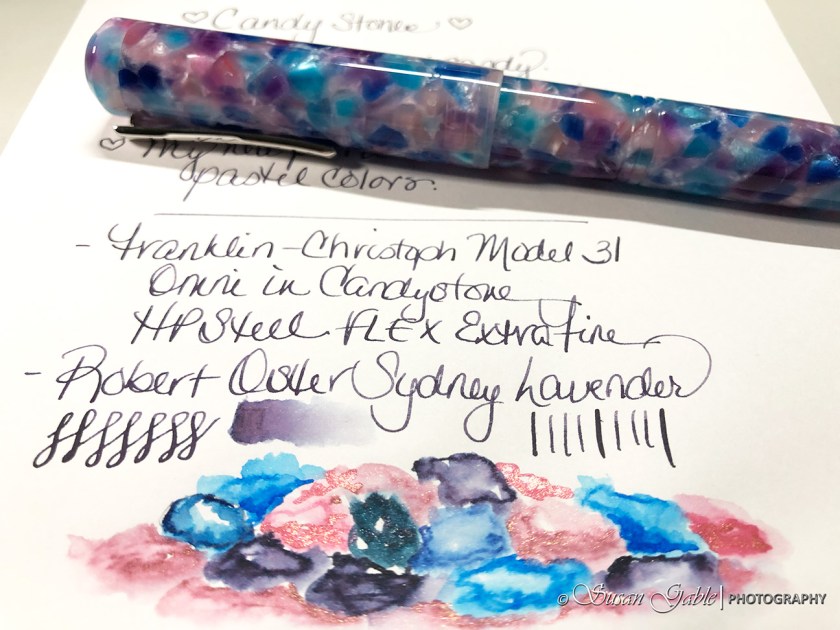 ♡ Candy Stone ♡
Candy.
♡ My
pastel colors.
- Franklin-Christoph Model 31
Omni in Candystone
HPSteel FLEX Extra Fine
- Robert Oster Sydney Lavender
© Susan Gable | PHOTOGRAPHY